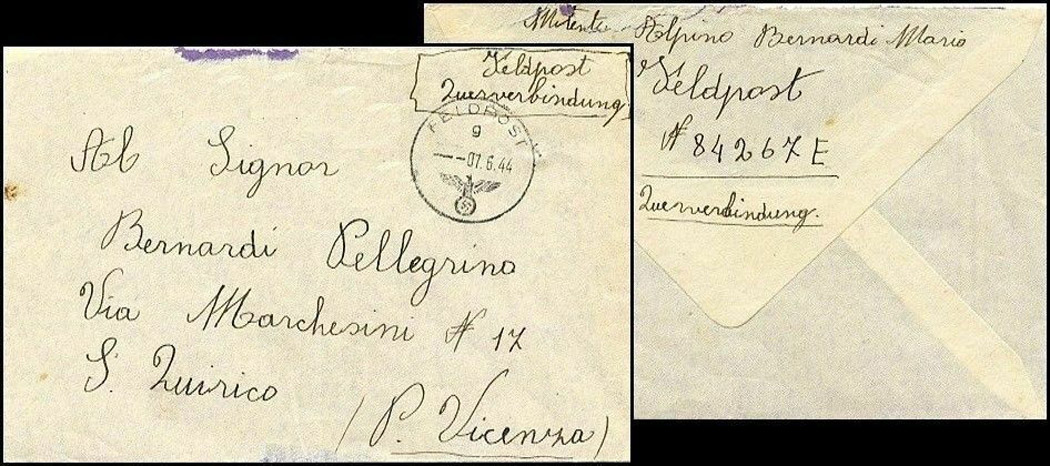 Feldpost
Querverbindung
FELDPOST
g
-- -07.6.44
Al Signor
Bernardi Pellegrino
Via Marchesini N 17
S. Quirico
(P. Vicenza)
Mitente Alpino Bernardi Mario
Feldpost
N 84267E
Querverbindung.